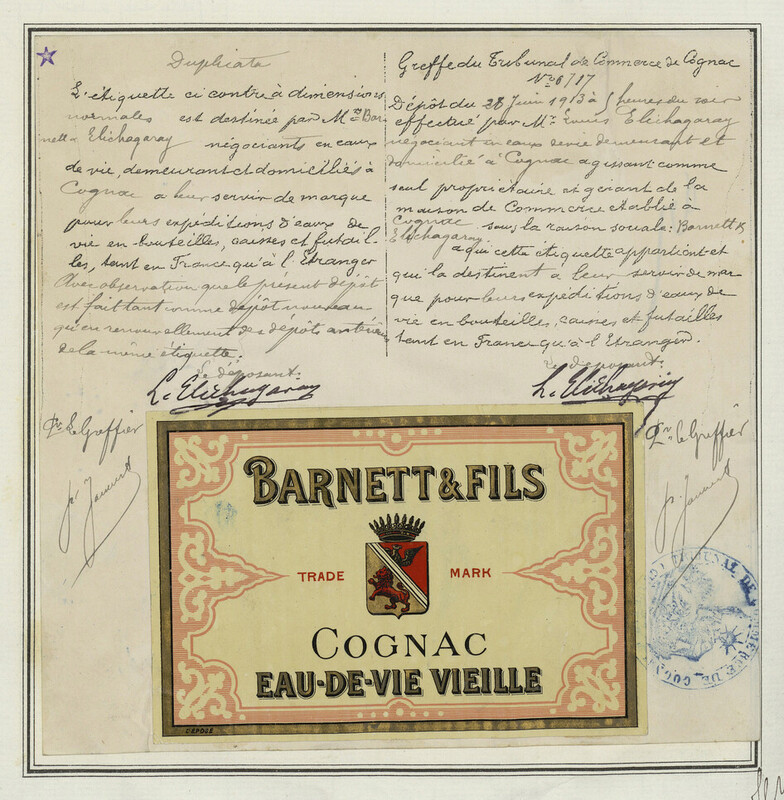 Duplicata
L'étiquette ci contre à dimensions
normales est destinée par Mrs Bar-
nett & Elichagaray négociants en eaux
de vie, demeurant et domiciliés à
Cognac a leur servir de marque
pour leurs expéditions d'eaux de
vie en bouteilles, caisses et futail-
les, tant en France qu'à l'Etranger
Avec observation que le présent dépôt
est fait tant comme dépôt nouveau
qu'en renouvellement des dépôts antérieurs
de la même étiquette.
Le déposant.
L. Elichagaray
Pr. Le Greffier
Greffe du Tribunal de Commerce de Cognac
Dépôt du 28 Juin 1913 à 5 heures du soir
effectué par Mr. Louis Elichagaray
négociant en eaux de vie demeurant et
domicilié à Cognac agissant comme
seul propriétaire négociant de la
maison de Commerce établie à
Cognac sous la raison sociale: Barnett &
Elichagaray
a qui cette étiquette appartient et
qui la destinent a leur servir de mar-
que pour leurs expéditions d'eaux de
vie en bouteilles, caisses et futailles
tant en France qu'à l'Etranger.
Le déposant.
L. Elichagaray
Pr. Le Greffier
BARNETT & FILS
TRADE MARK
COGNAC
EAU-DE-VIE VIEILLE
DÉPOSÉ
TRIBUNAL DE COMMERCE DE COGNAC